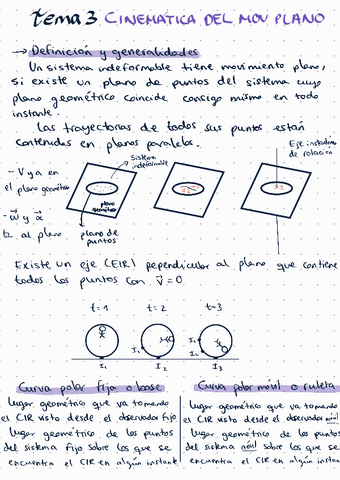 tema 3 CINEMATICA DEL MOV PLANO
→ Definición y generalidades
Un sistema indeformable tiene movimiento plano,
si existe un plano de puntos del sistema cuyo
plano geométrico coincide consigo mismo en todo
instante.
Las trayectorias de todos sus puntos están
contenidas en planos paralelos.
Eje instantáneo
de rotación
Sistema
indeformable
- V y a en
el plano geométrico
plano
geométrico
- w y α
al plano
plano de
puntos
Existe un eje (EIR) perpendicular al plano que contiene
todos los puntos con v = 0
t=1 t=2 t=3
I₁ I₂ I₁ I₁ I₂ I₃
Curva polar fija o base
lugar geométrico que va tomando
el CIR visto desde el observador fijo
lugar geométrico de los puntos
del sistema fijo sobre los que se
encuentra el CIR en algún instante
Curva polar móvil o ruleta
lugar geométrico que va tomando
el CIR visto desde el observador móvil
lugar geométrico de los puntos
del sistema móvil sobre los que se
encuentra el CIR en algún instan